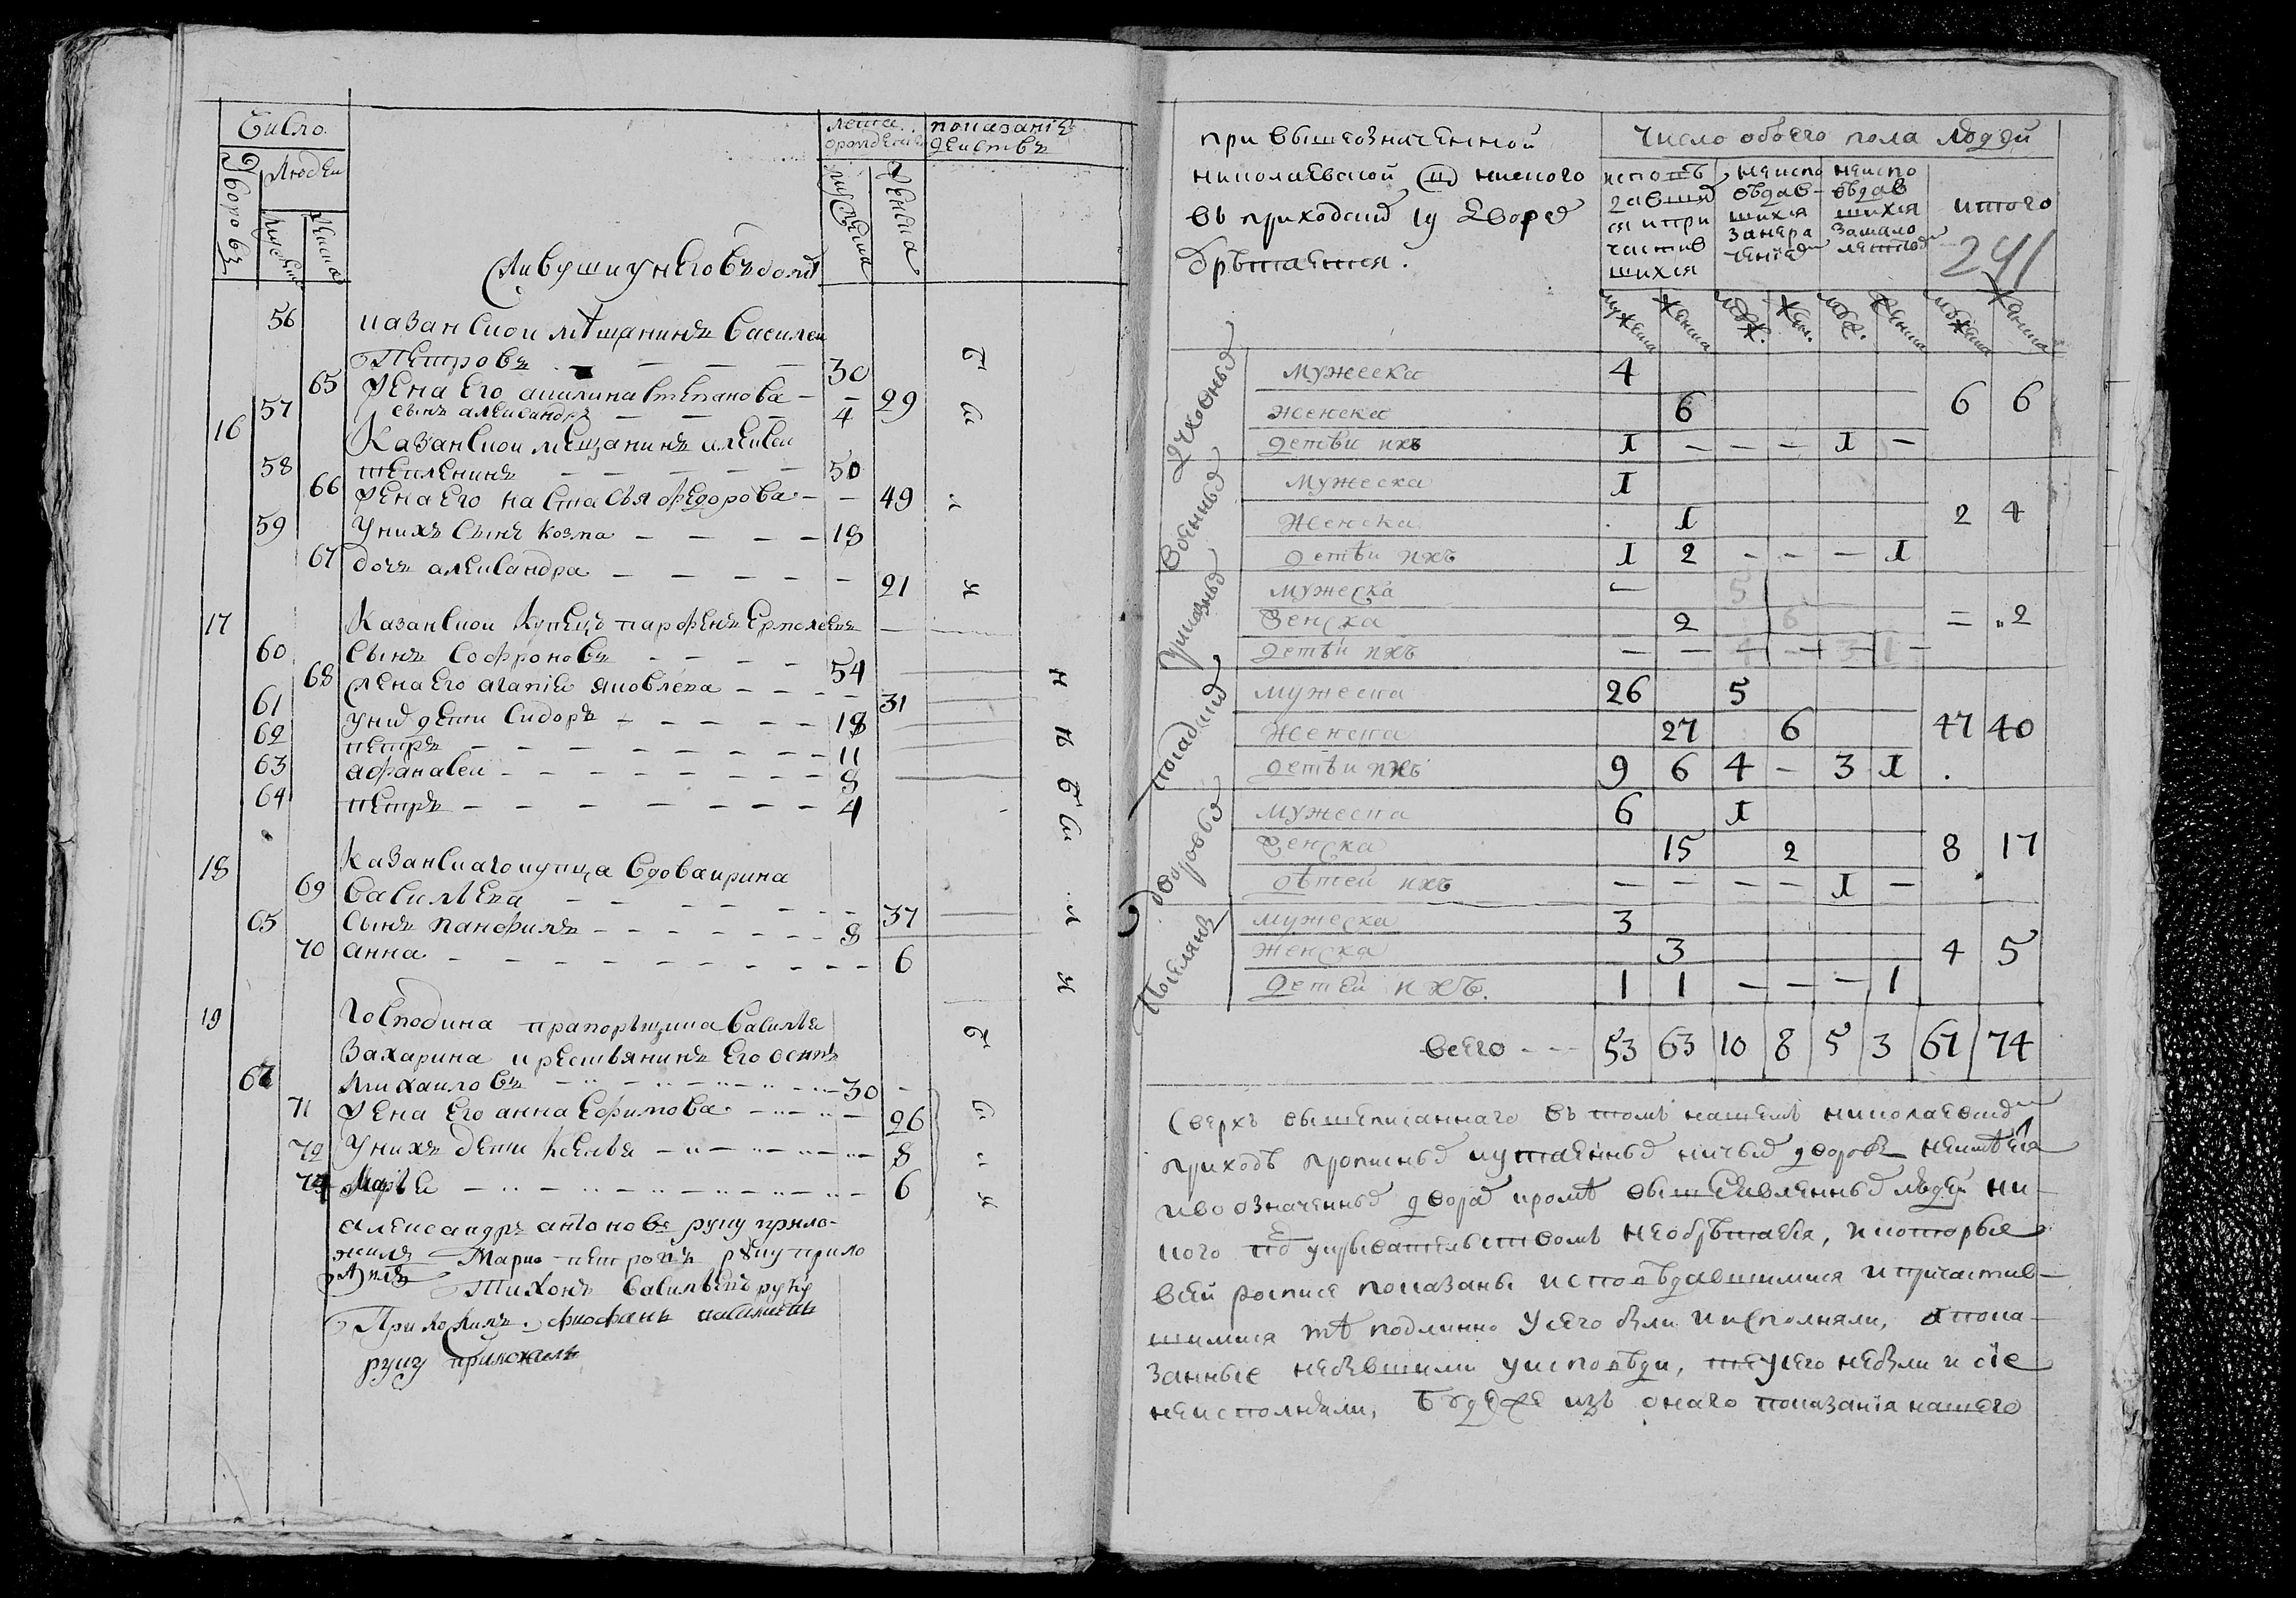 Число
Дворовъ
Людей
Мужеска
Женска
Лета
от рождения
мужеска
женска
показаниѣ
действъ
Живущии у него въ доме
56 казанскои мѣщанинъ василеи
Петровъ — — — 30
65 жена его акилина степанова — — 29
57 сынъ александръ — — — 4
16 Казанскои мещанинъ алексеи
58 тепленинъ — — — — 50
66 жена его настасья федорова — — 49
59 У нихъ сынъ козма — — — — 18
67 дочь александра — — — — — 21
17 Казанскои купецъ парфенъ ермолаевъ
60 сынъ Софроновъ — — — — 54
68 жена его агапие яковлева — — — — 31
61 у них дети сидоръ — — — — — 18
62 петръ — — — — — — — — 11
63 афанасеи — — — — — — — 8
64 петръ — — — — — — — — 4
18 Казанскаго купца вдова ирина
69 васильева — — — — — — 37
65 сынъ панфилъ — — — — — — 8
70 анна — — — — — — — — — 6
19 Господина прапорщика василья
Захарина крестьянинъ его осипъ
66 михаиловъ — — — — 30 —
71 жена его анна ефимова — — — 26
72 У нихъ дети — — — — 8
74 Марьѣ — — — — — — 6
александръ антоновъ руку прило-
жилъ Марко петровъ руку прило
жилъ Тихонъ васильевъ руку
Приложилъ. феофанъ
руку приложилъ
при вышеозначенной
николаевской ц нискoго
въ приходе 19 дворе
обрѣтается.
число обоего пола людей
исповѣ
давших
ся и при
частив
шихся
неиспо
вѣдав-
шихся
за нера
чением
неиспо
вѣдав
шихся
за мало
летством
итого
241
мужеска женска муж. жен. муж. женска мужеска женска
духовных
мужеска 4
женска 6 6 6
детѣи ихъ 1 — — — 1 —
военных
мужеска 1
женска 1 2 4
детѣи ихъ 1 2 — — — 1
приказных
мужеска — 5
женска 2 6 = 2
детѣи ихъ — — 4 — 3 1 —
посадских
мужеска 26 5
женска 27 6 47 40
детѣи ихъ 9 6 4 — 3 1
дворовых
мужеска 6 1
женска 15 2 8 17
дѣтей ихъ — — — — 1 —
поселянъ
мужеска 3
женска 3 4 5
детей ихъ. 1 1 — — — 1
всего - - - 53 63 10 8 5 3 67 74
Сверхъ вышеписаннаго въ томъ нашемъ николаевском
приходѣ прописных и утаенных ничьих дворовъ неимѣется
и во означенных дворах кромѣ вышеявленных людей ни-
кого под укрывательствомъ необрѣтается, и которые
в сей росписе показаны исповѣдавшимися и причастив-
шимися тѣ подлинно у сего были и исполняли, а пока-
занные небывшими у исповѣди, те у сего небыли и сїе
неисполняли, буде же изъ онаго показанїя нашего